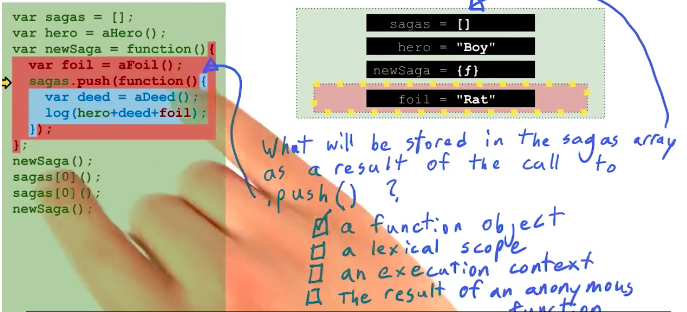 var sagas = [];
var hero = aHero();
var newSaga = function(){
var foil = aFoil();
sagas.push(function(){
var deed = aDeed();
log(hero+deed+foil);
});
};
newSaga();
sagas[0]();
sagas[0]();
newSaga();
sagas = []
hero = "Boy"
newSaga = {ƒ}
foil = "Rat"
What will be stored in the sagas array
as a result of the call to
.push() ?
a function object
a lexical scope
an execution context
The result of an anonymous
function